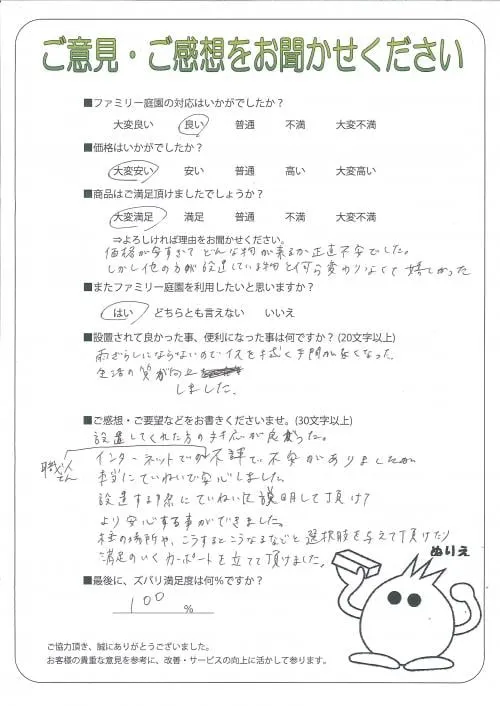 ご意見・ご感想をお聞かせください
■ファミリー庭園の対応はいかがでしたか？
大変良い 良い 普通 不満 大変不満
■価格はいかがでしたか？
大変安い 安い 普通 高い 大変高い
■商品はご満足頂けましたでしょうか？
大変満足 満足 普通 不満 大変不満
⇒よろしければ理由をお聞かせください。
価格が安すぎて どんな物が来るか正直不安でした。
しかし他の方が設置している物と何ら変わりなくて嬉しかった
■またファミリー庭園を利用したいと思いますか？
はい どちらとも言えない いいえ
■設置されて良かった事、便利になった事は何ですか？(20文字以上)
雨ざらしにならないのでイスを拭く手間が無くなった。
生活の質が向上
しました。
■ご感想・ご要望などをお書きくださいませ。(30文字以上)
設置してくれた方の対応が良かった。
職人さん
インターネットでの不評で不安がありましたが
本当にていねいで安心しました。
設置する際にていねいに説明して頂け
より安心する事ができました。
柱の場所や、こうするとこうなるなどと選択肢を与えて頂けたり
満足のいくカーポートを立てて頂けました。
ぬりえ
■最後に、ズバリ満足度は何%ですか？
100 %
ご協力頂き、誠にありがとうございました。
お客様の貴重な意見を参考に、改善・サービスの向上に活かして参ります。